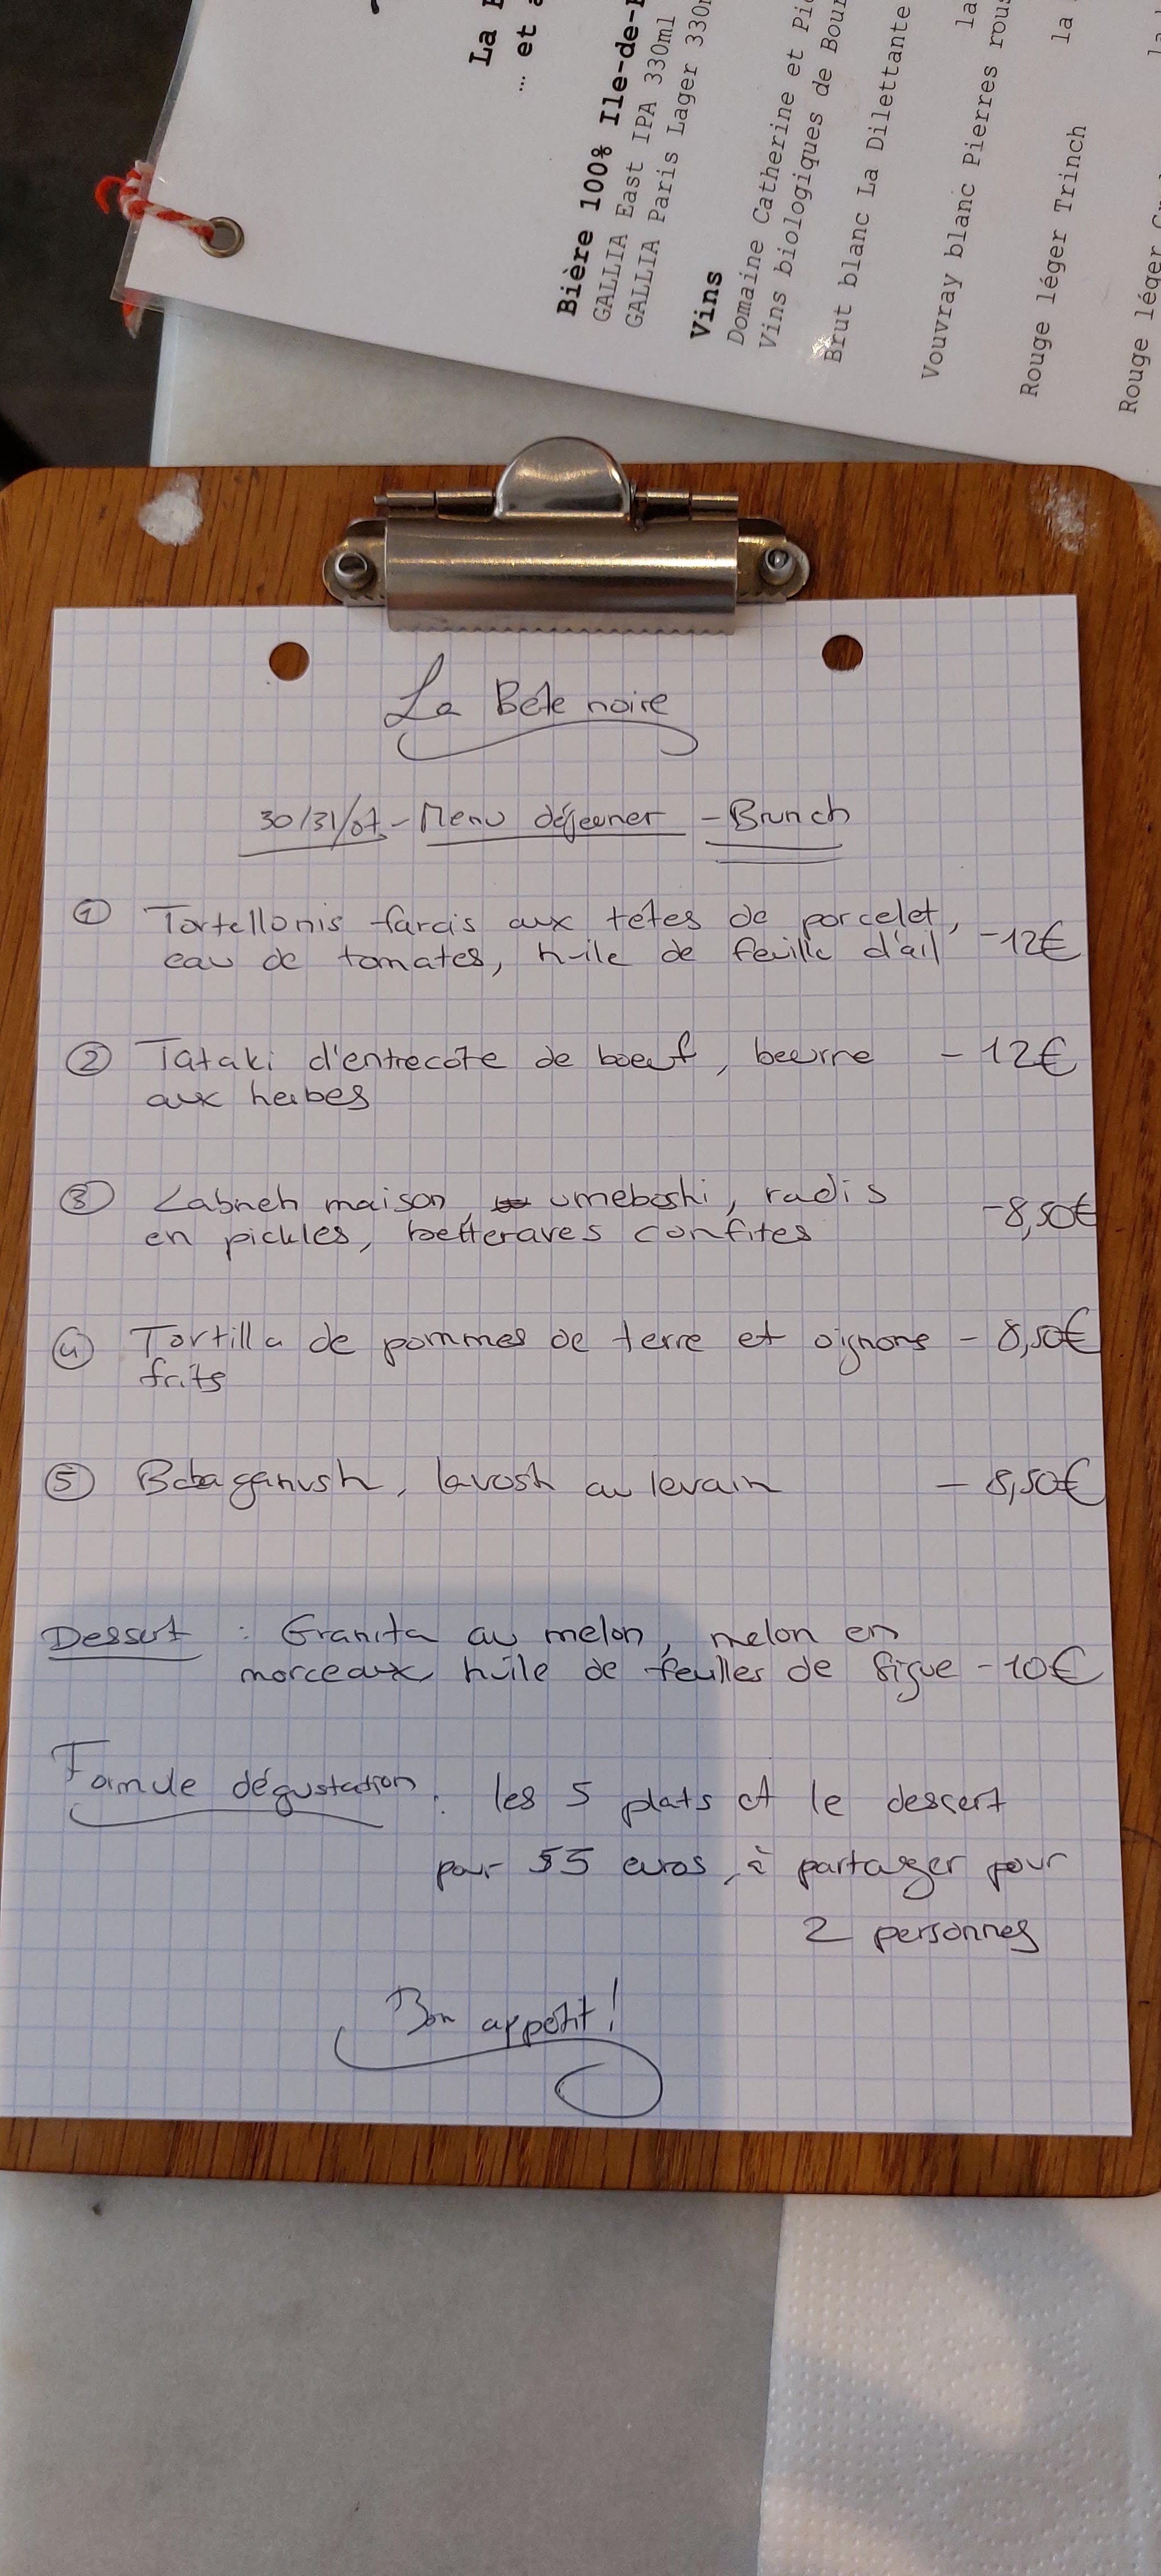 La
... et
Bière 100% Ile-de-
GALLIA East IPA 330ml
GALLIA Paris Lager 330
Vins
Domaine Catherine et
Vins biologiques de
Brut blanc La Dilettante
la
Vouvray blanc Pierres
la
Rouge léger Trinch
Rouge léger
La Bête noire
30/31/07 - Menu déjeuner - Brunch
① Tortellonis farcis aux têtes de porcelet,
eau de tomates, huile de feuille d'ail - 12€
② Tataki d'entrecôte de boeuf, beurre - 12€
aux herbes
③ Labneh maison, umeboshi, radis
en pickles, betteraves confites - 8,50€
④ Tortilla de pommes de terre et oignons - 8,50€
frits
⑤ Babaganush, lavosh au levain - 8,50€
Dessert : Granita au melon, melon en
morceaux huile de feuilles de figue - 10€
Formule dégustation : les 5 plats et le dessert
pour 55 euros, à partager pour
2 personnes
Bon appétit !